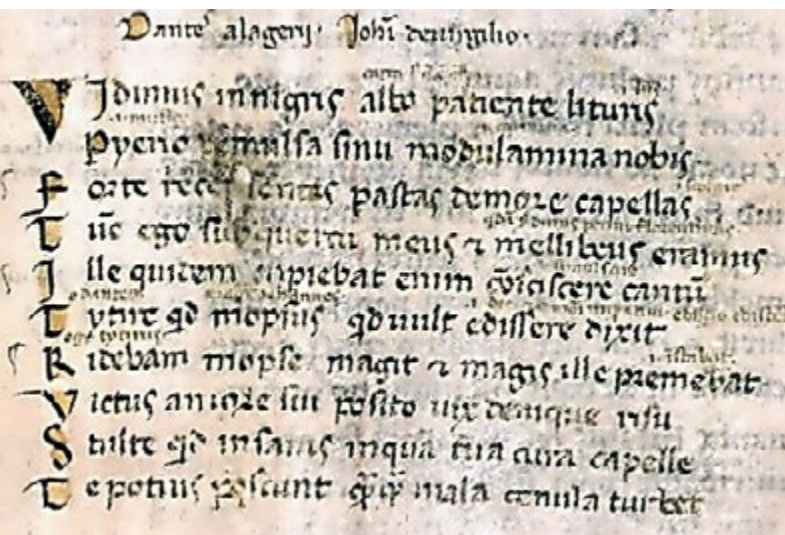 Dantes alagerij. Johi de virgilio.
Vidimus in nigris albo patiente lituris
Pyerio demulsa sinu modulamina nobis
Forte recensentes pastas de more capellas
Tuc ego sub quercu meus & melibeus eramus
Ille quidem cupiebat enim consciscere cantu
Tytire qd mopsus qd uult edissere dixit
Ridebam mopse magit & magis ille premebat
Victus amore sui posito uix denique risu
Stulte qd insanis inqua tua cura capelle
Te potius poscunt qq mala cenula turbet